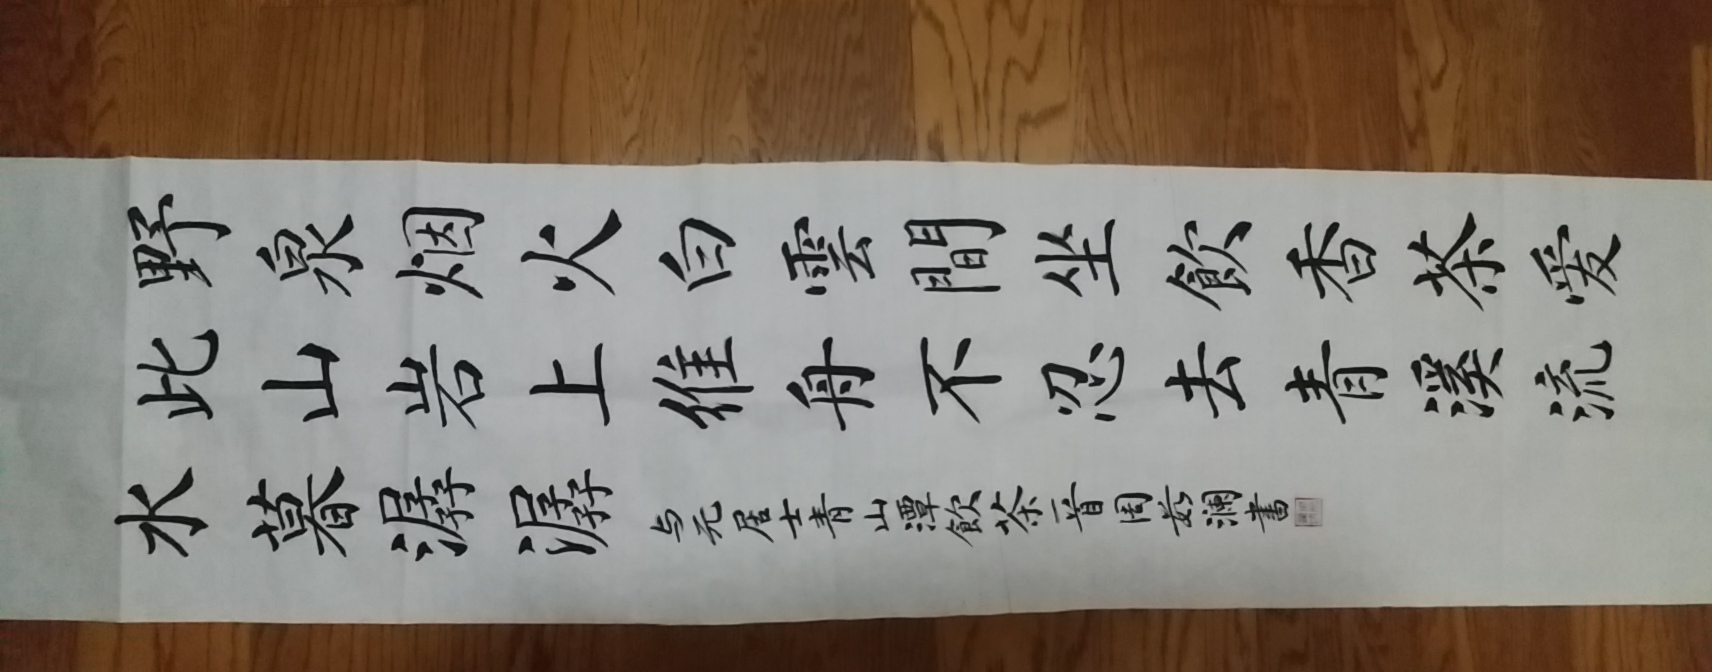 野泉烟火白雲間坐飲香茶爱
此山岩上維舟不忍去青溪流
水暮潺潺
与元居士青山潭飲茶一首周澜書